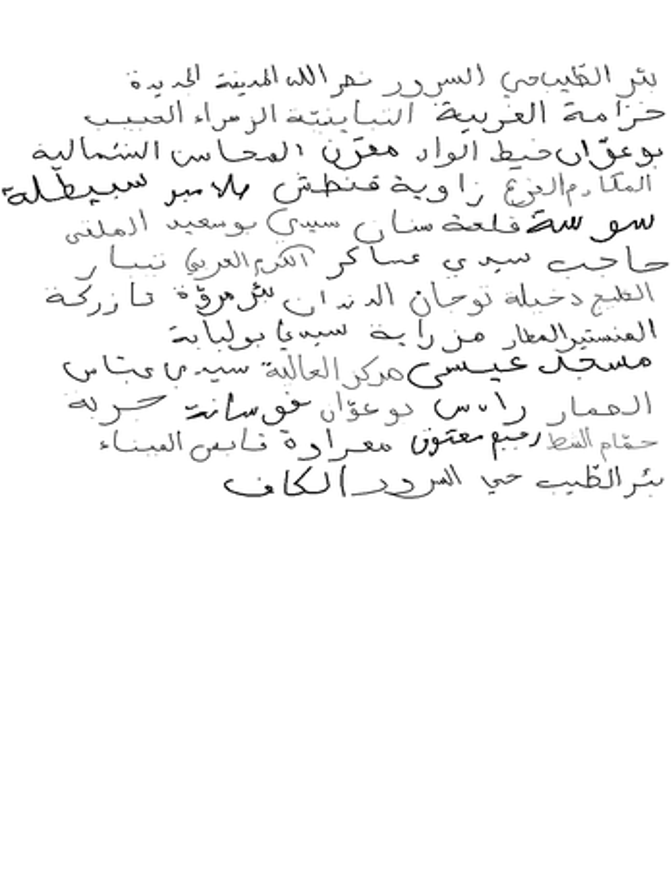 بئر الطّيب حي السرور نصر الله المدينة الجديدة
خزامة الغربية النباينتة الزهراء الحبيب
بوعوّان خيط الواد مقرن المحاسن الشمالية
المكارم زاوية قنطش ملامير سبيطلة
سوسة قلعة سنان سيدي بوسعيد الملقى
حاجب سيدي عساكر الكرم الغربي نبار
الخليج دخيلة توجان الدندان بئر مروّة تازركة
المنستير المطار مزراية سيدي بولبابة
مسجد عيسى مركز العالية سيدي عبّاس
الحمار راس بوعوّان فوسانة جربة
حمّام الشط رجيم معتوق معرادة قابس الميناء
بئر الطّيب حي السرور الكاف